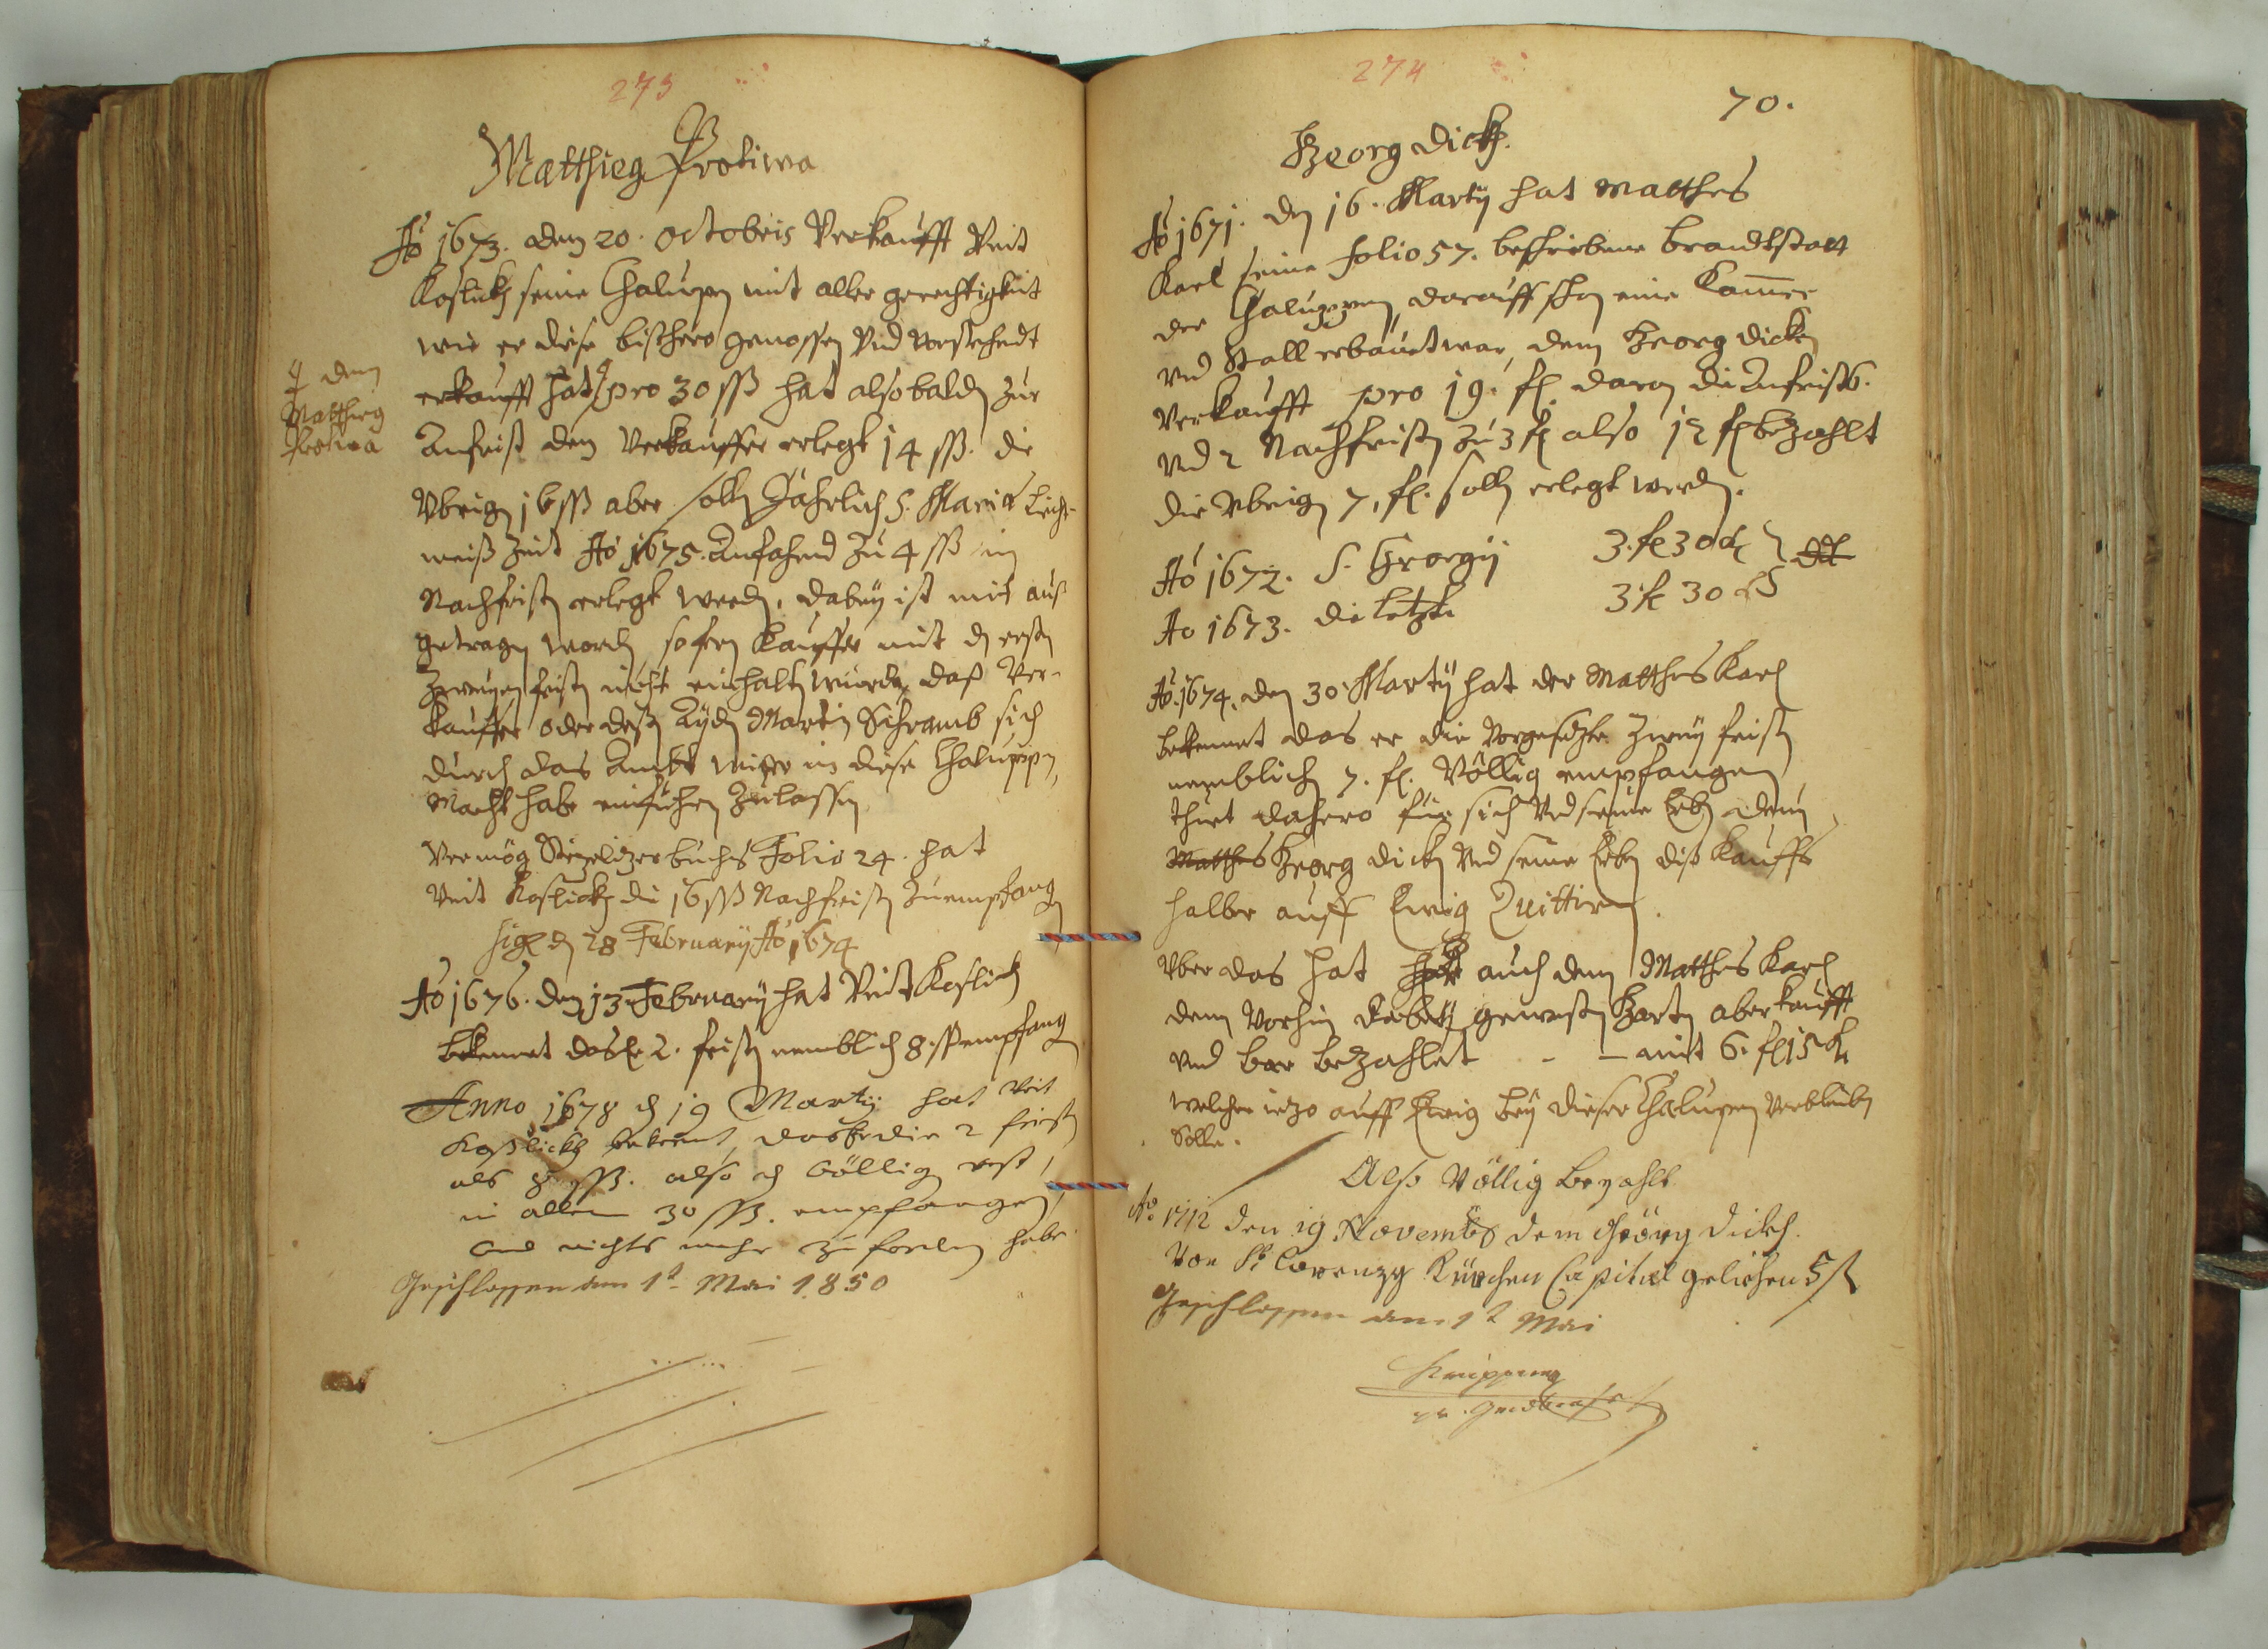 273
Matthieg Protiwa
Aõ 1673. den 20. octobris Verkaufft Veit
Koslickh seine Chalupen mit aller gerechtigkeit
wie er diese bisshero genossen Vnd vorstehendt
erkaufft hat pro 30 ßß hat also baldt zur
dem
Matthieg
Protiwa
Anfrist dem Verkauffer erlegt 14 ßß. die
Vbrigen 16 ßß aber sollen Jährlich S. Mariæ Liecht-
meiß Zeit Aõ 1675. Anfahend zu 4 ßß in
Nachfristen erlegt werden, dabey ist mit auß
getragen worden, sofern Kauffer mit den ersten
Zweyen fristen nicht einhalten würde, daß Ver-
kauffer oder deßen Ayden Martin Schramb sich
durch das Ambt wider in diese Chaluppen
Macht habe einführen zulassen
Vermög buchs Folio 24. hat
Veit Koslickh die 16 ßß Nachfristen zuempfangen
den 28 February Aõ 1674
Aõ 1676. den 13 February hat Veit Koslickh
bekennet das Er 2. fristen nemblich 8. ßß empfangen
Anno 1678 den 19 Martij hat Veit
Koßlickh bekennt, das Er die 2 fristen
als 8 ßß. also völlig
in allem 30 ßß. empfangen,
Vnd nichts mehr zu fordern habe
Geschlossen am 1t Mai 1850
274
70.
Georg Dickh.
Aõ 1671. den 16. Martij hat Matthes
Karl seine folio 57. beschriebene brandtstatt
der Chaluppen, darauff schon eine Kammer
vnd Stall erbauet war, dem Georg Dickhen
Verkaufft pro 19. fl. daran die Anfrist 6.
vnd 2 Nachfristen zu 3 fl also 12 fl bezahlt
die vbrigen 7. fl. sollen erlegt werden.
Aõ 1672. S. Georgij 3. fl 30 dt
Ao 1673. die letzte 3 fl 30
Aõ. 1674. den 30 Martij hat der Matthes Karl
bekennet das er die Vorgesetzte Zwey fristen
nemblich 7. fl. Völlig empfangen
thuet dahero für sich Vnd seine Erben dem
Matthes Georg Dickhen Vnd seine Erben diß Kauffs
halber auff Ewig Quittiren.
Vber das hat Er auch dem Matthes Karl
den Vorhin darbey gewesten Garten aberkaufft
vnd bar bezahlet - - mit 6. fl 15 Kr
welcher iezo auff Ewig bey dieser Chalupen Verbleiben
Solle.
Also Völlig bezahlt
Aõ. 1712 den 19 Novembris dem Geörg Dickh.
Von St. Lorenzy Kürchen Capital geliehen 5 fl
Geschlossen am 1t Mai